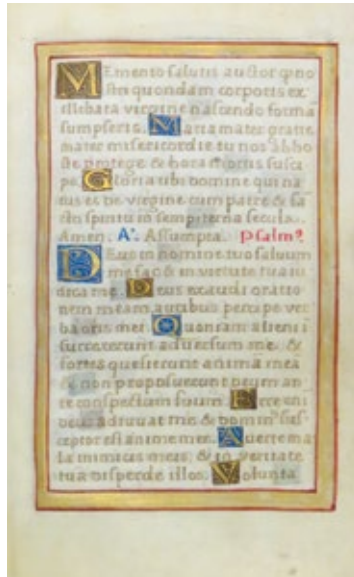 Memento salutis auctor q̄ no
stri quondam corporis ex
illibata virgine nascendo formā
sumpseris. Maria mater gratie
mater misericordie tu nos ab ho
ste protege & hora mortis susci
pe. Gloria tibi domine qui na
tus es de virgine cum patre & sā
cto spiritu in sempiterna secula.
Amen. A᷒. Assumpta. psalm9.
Deus in nomine tuo saluum
me fac & in virtute tua iu
dica me. Deus exaudi oratio
nem meam auribus percipe ver
ba oris mei. Quoniam alieni in
surrexerunt aduersum me. &
fortes quesierunt animā meā
& non proposuerunt deum an
te conspectum suum. Ecce eni
deus adiuuat me & domin9 sus
ceptor est anime mee. Auerte ma
la inimicis meis. & in veritate
tua disperde illos. Volunta